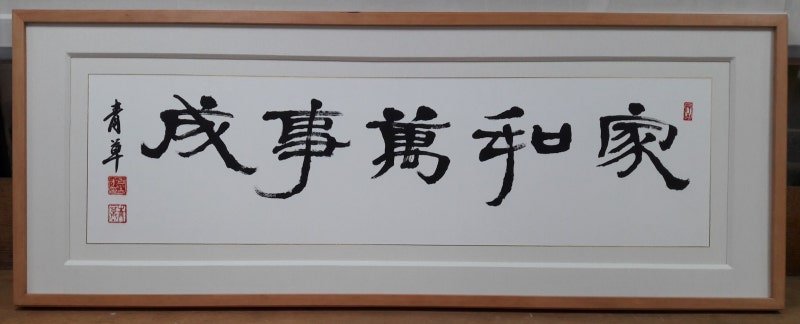 家和萬事成
青草